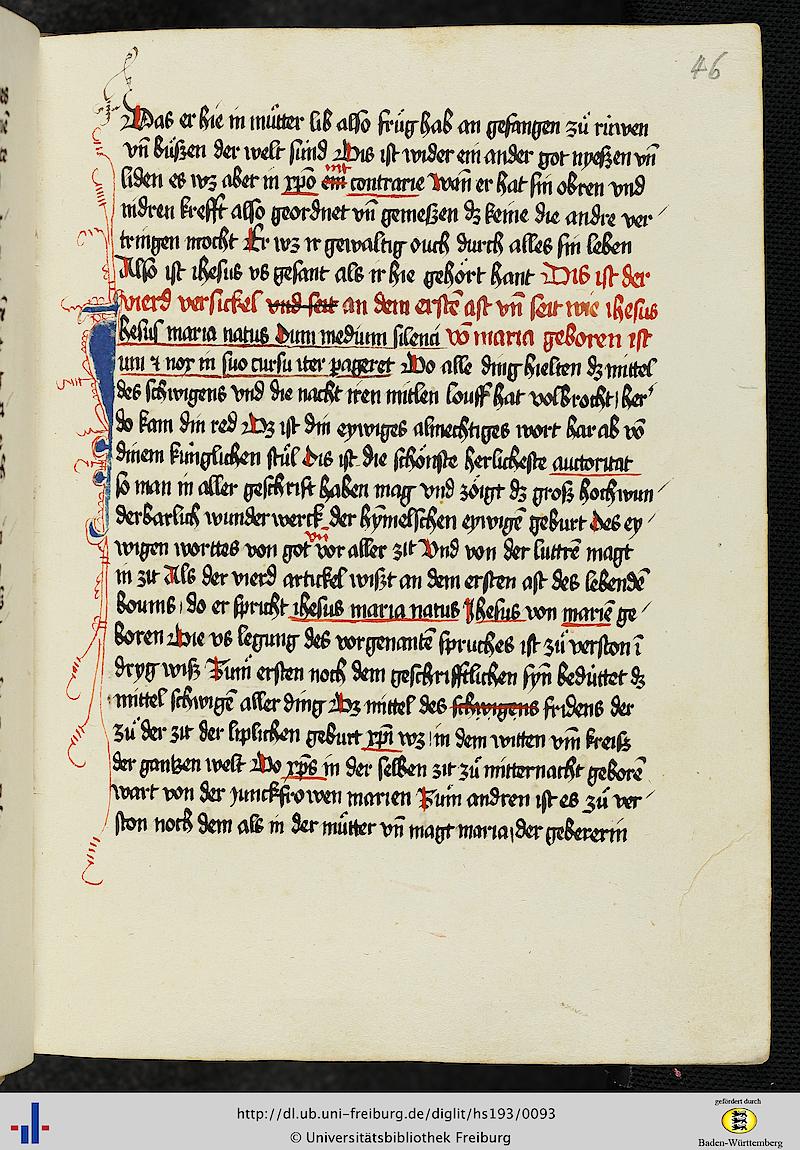 46
Das er hie in můtter lib also frůg hab an gefangen zů růwen
vn̄ bůszen der welt sünd Dis ist wider ein ander got nyeszen vn̄
liden es wz aber in xp̄o ein mit contrarie Wan̄ er hat sin obren vnd
nidren krefft also geordnet vn̄ gemeszen dz keine die andre ver
tringen mocht Er wz ir gewaltig ouch durch alles sin leben
Also ist ihesus vs gesant als ir hie gehört hant Dis ist der
vierd versickel vnd seit an dem erstē ast vn̄ seit wie ihesus
Ihesus maria natus Dum medium silenci vō maria geboren ist
um ⁊ nox in suo cursu iter pageret Do alle ding hielten dz mittel
des schwigens vnd die nacht iren mitlen louff hat volbrocht her
do kam din red Dz ist din eywiges almechtiges wort har ab vō
dinem küniglichen stůl Dis ist die schönste herlicheste auctoritat
so man in aller geschrift haben mag vnd zöigt dz grosz hochwun
derbarlich wunderwerck der hȳmelschen eywigē geburt des ey
wigen worttes von got vn̄ vor aller zit Vnd von der luttrē magt
in zit Als der vierd artickel wiszt an dem ersten ast des lebendē
boums do er spricht ihesus maria natus Ihesus von mariē ge
boren Die vs legung des vorgenantē spruches ist zů verston ī
dryg wisz Zum ersten noch dem geschrifftlichen syn̄ bedüttet dz
mittel schwigē aller ding Dz mittel des schwigens fridens der
zů der zit der liplichen geburt xp̄i wz in dem witten vm̄ kreisz
der gantzen welt Do xp̄s in der selben zit zů mitternacht geborē
wart von der junckfrowen marien Zum andren ist es zů ver
ston noch dem als in der můtter vn̄ magt maria der gebererin
http://dl.ub.uni-freiburg.de/diglit/hs193/0093
© Universitätsbibliothek Freiburg
gefördert durch
Baden-Württemberg